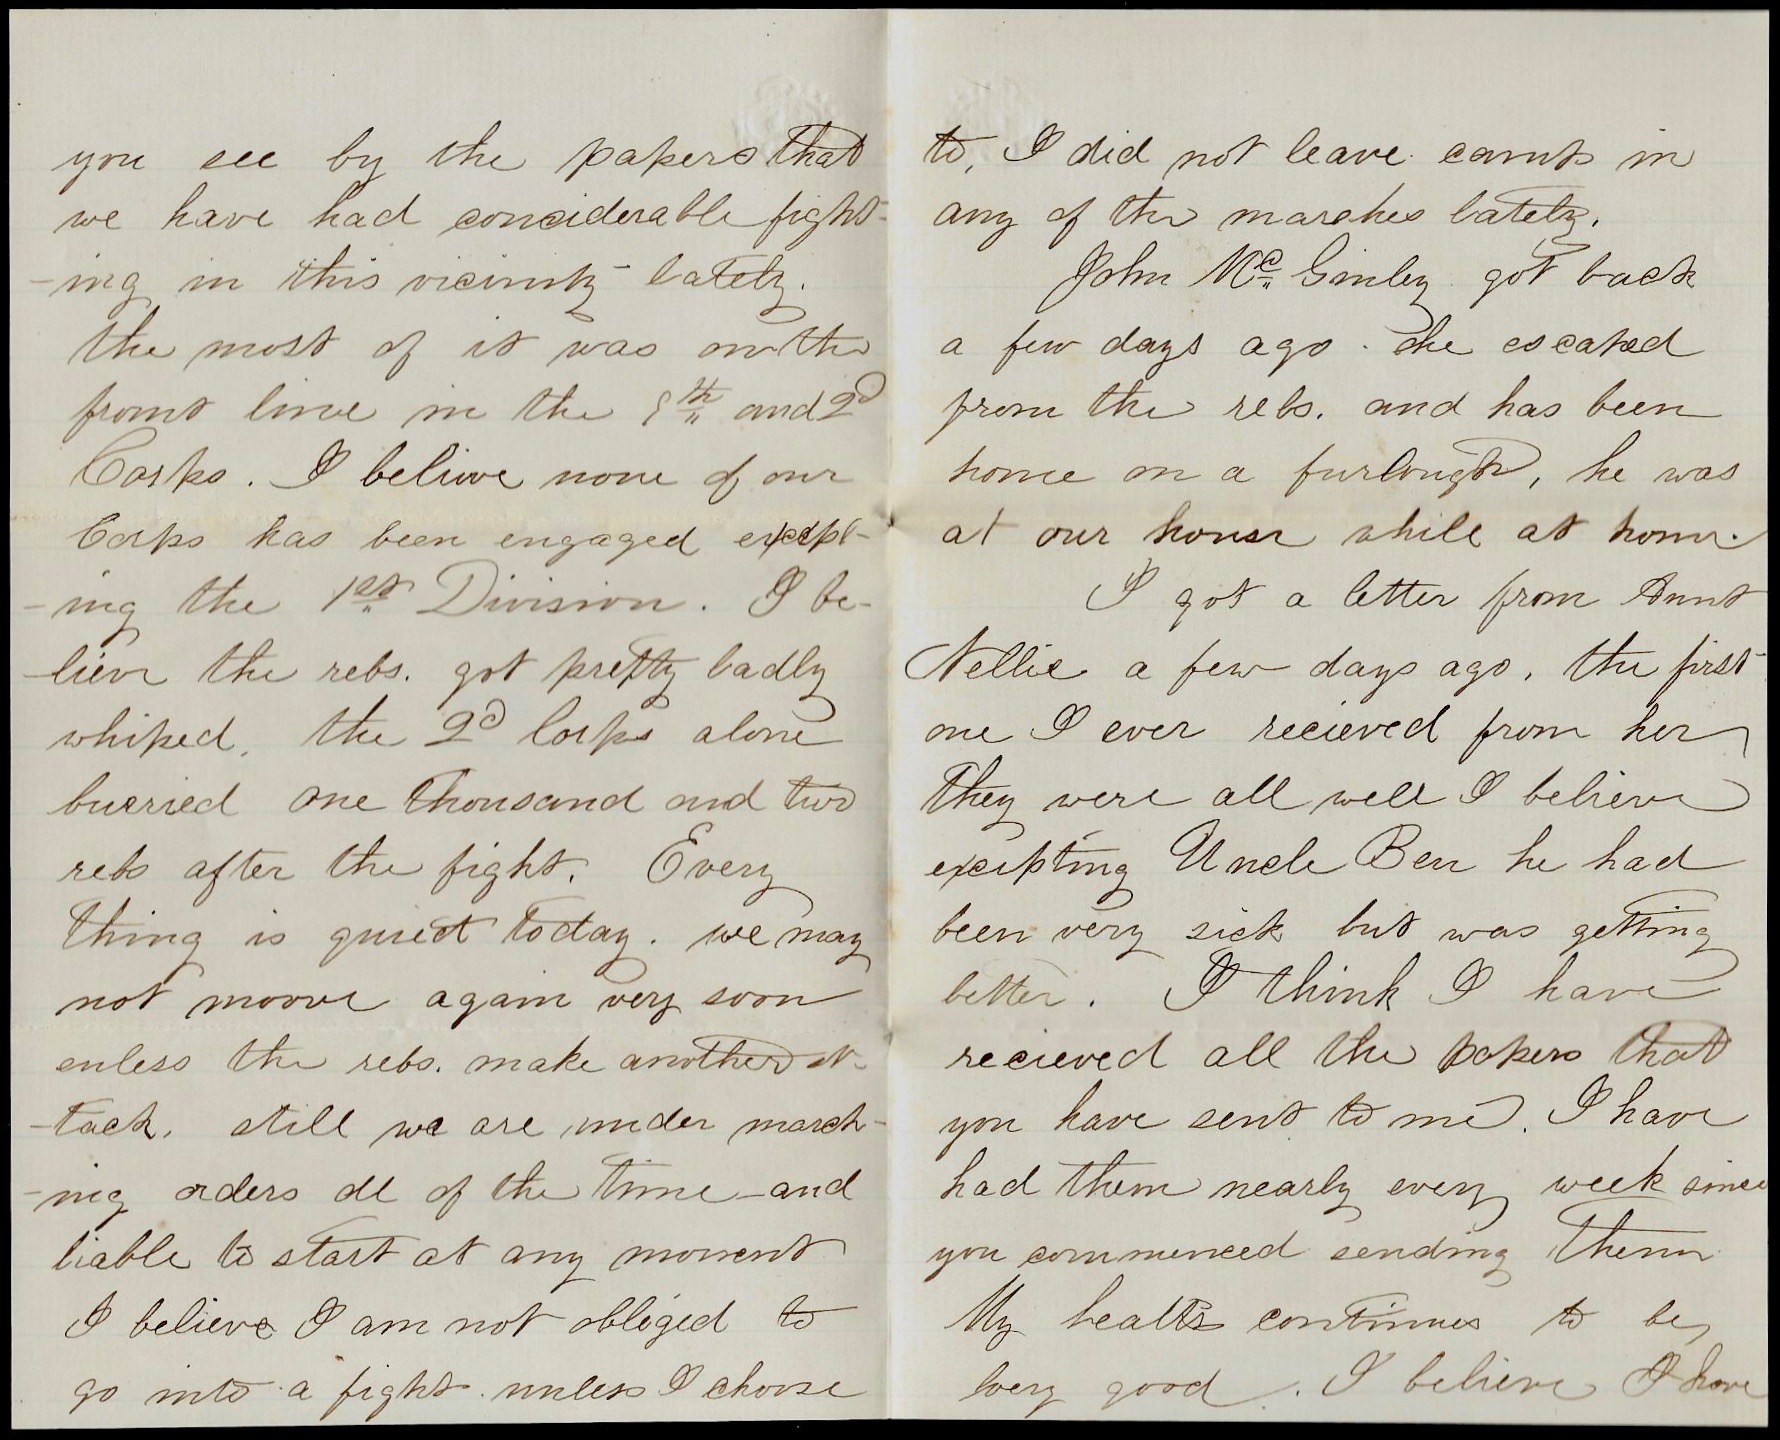 you see by the papers that
we have had conciderable fight-
-ing in this vicinity lately.
the most of it was on the
front line in the 9th and 2d
Corps. I believe none of our
Corps has been engaged exept-
-ing the 1st Division. I be-
-lieve the rebs. got pretty badly
whiped. the 2d Corps alone
buerried one thousand and two
rebs after the fight. Every
thing is quiet today. we may
not moove again very soon
enless the rebs. make another at-
-tack. still we are under march-
-ing orders all of the time and
liable to start at any moment
I believe I am not obliged to
go into a fight unless I choose
to, I did not leave camp in
any of the marches lately.
John McGinley got back
a few days ago. he escaped
from the rebs. and has been
home on a furlough, he was
at our house while at home.
I got a letter from Aunt
Nellie a few days ago, the first
one I ever recieved from her
They were all well I believe
exceipting Uncle Ben he had
been very sick but was getting
better. I think I have
recieved all the papers that
you have sent to me. I have
had them nearly every week since
you commenced sending them
My health continues to be
very good. I believe I have